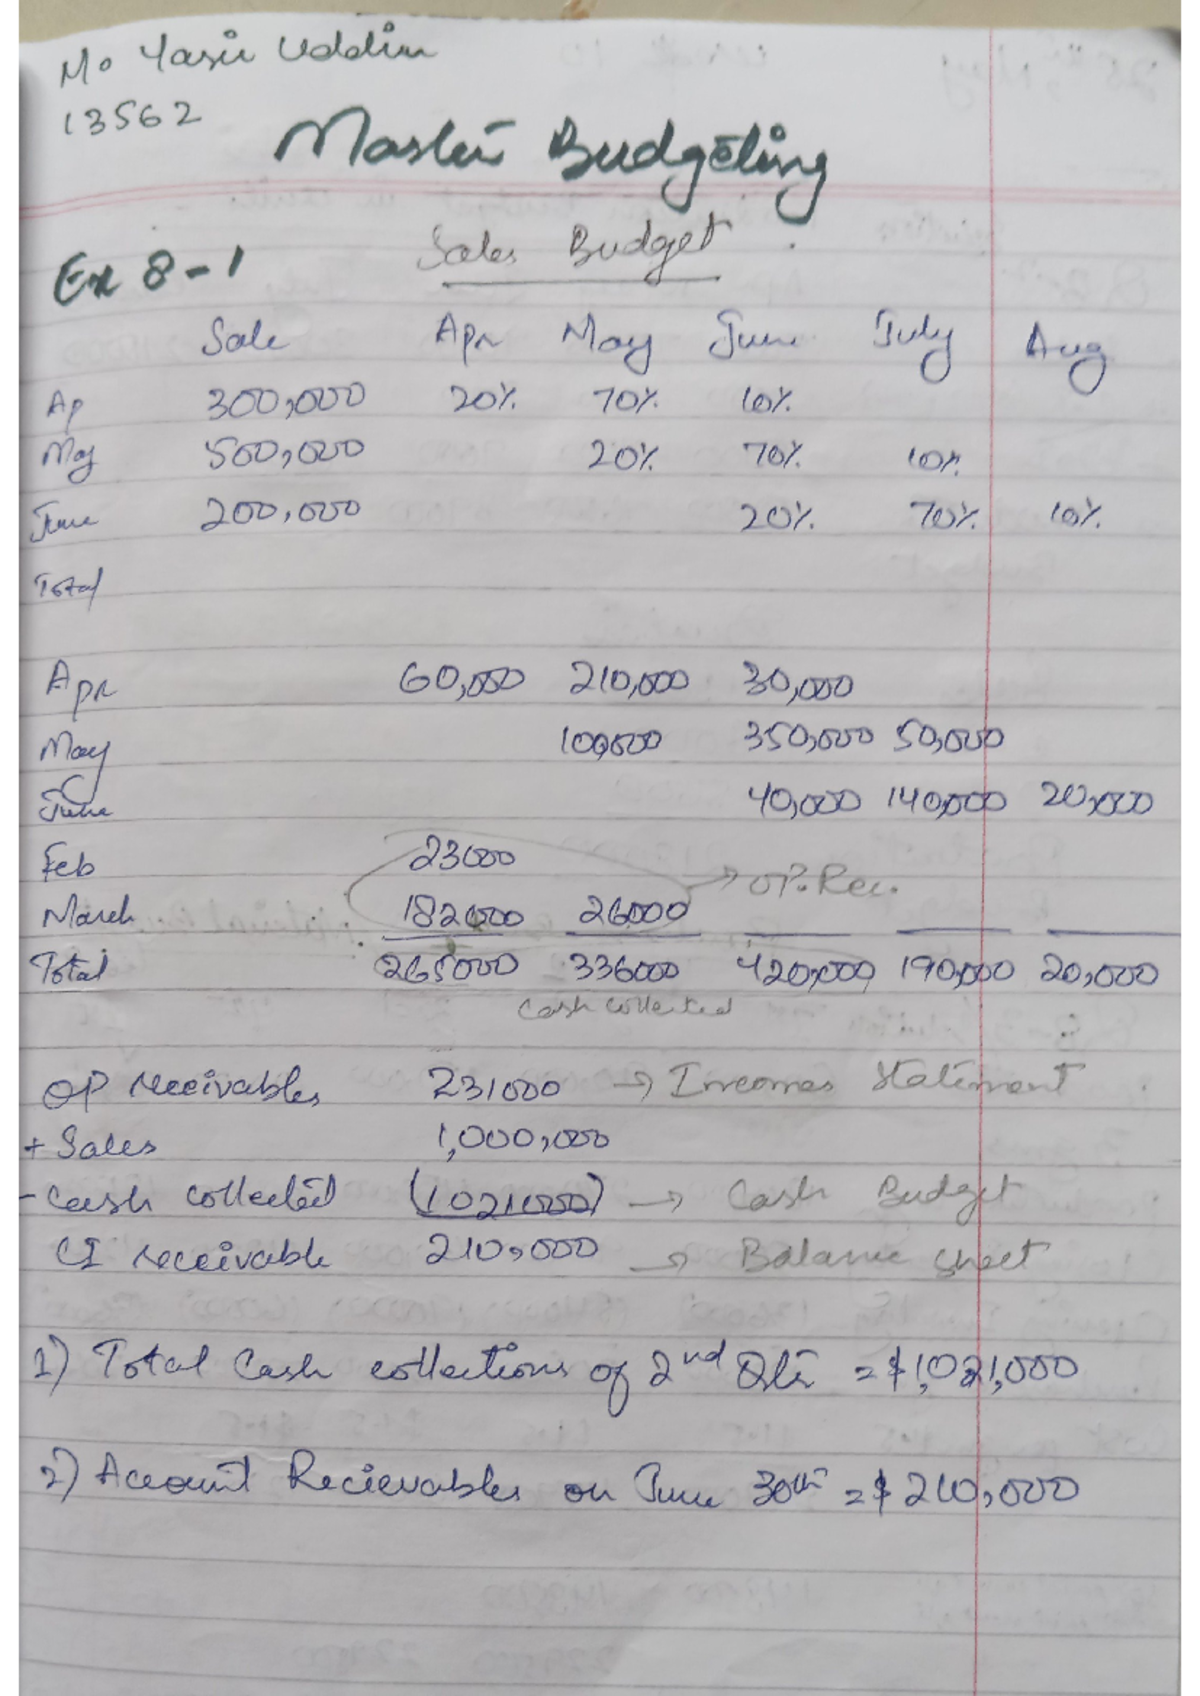 Mo Yasir Uddin
13562
Master Budgeting
Sales Budget
Ex 8-1
Sale Apr May June July Aug
Ap 300,000 20% 70% 10%
May 500,000 20% 70% 10%
June 200,000 20% 70% 10%
Total
Apr 60,000 210,000 30,000
May 100,000 350,000 50,000
June 40,000 140,000 20,000
Feb 23000
March 182000 26000 → OP. Rec.
Total 265000 336000 420,000 190,000 20,000
Cash collected
OP receivables 231000 → Incomes Statement
+ Sales 1,000,000
- Cash collected (1021000) → Cash Budget
Cl receivable 210,000 → Balance sheet
1) Total Cash collections of 2nd Qtr = $1,021,000
2) Account Recievables on June 30th = $210,000